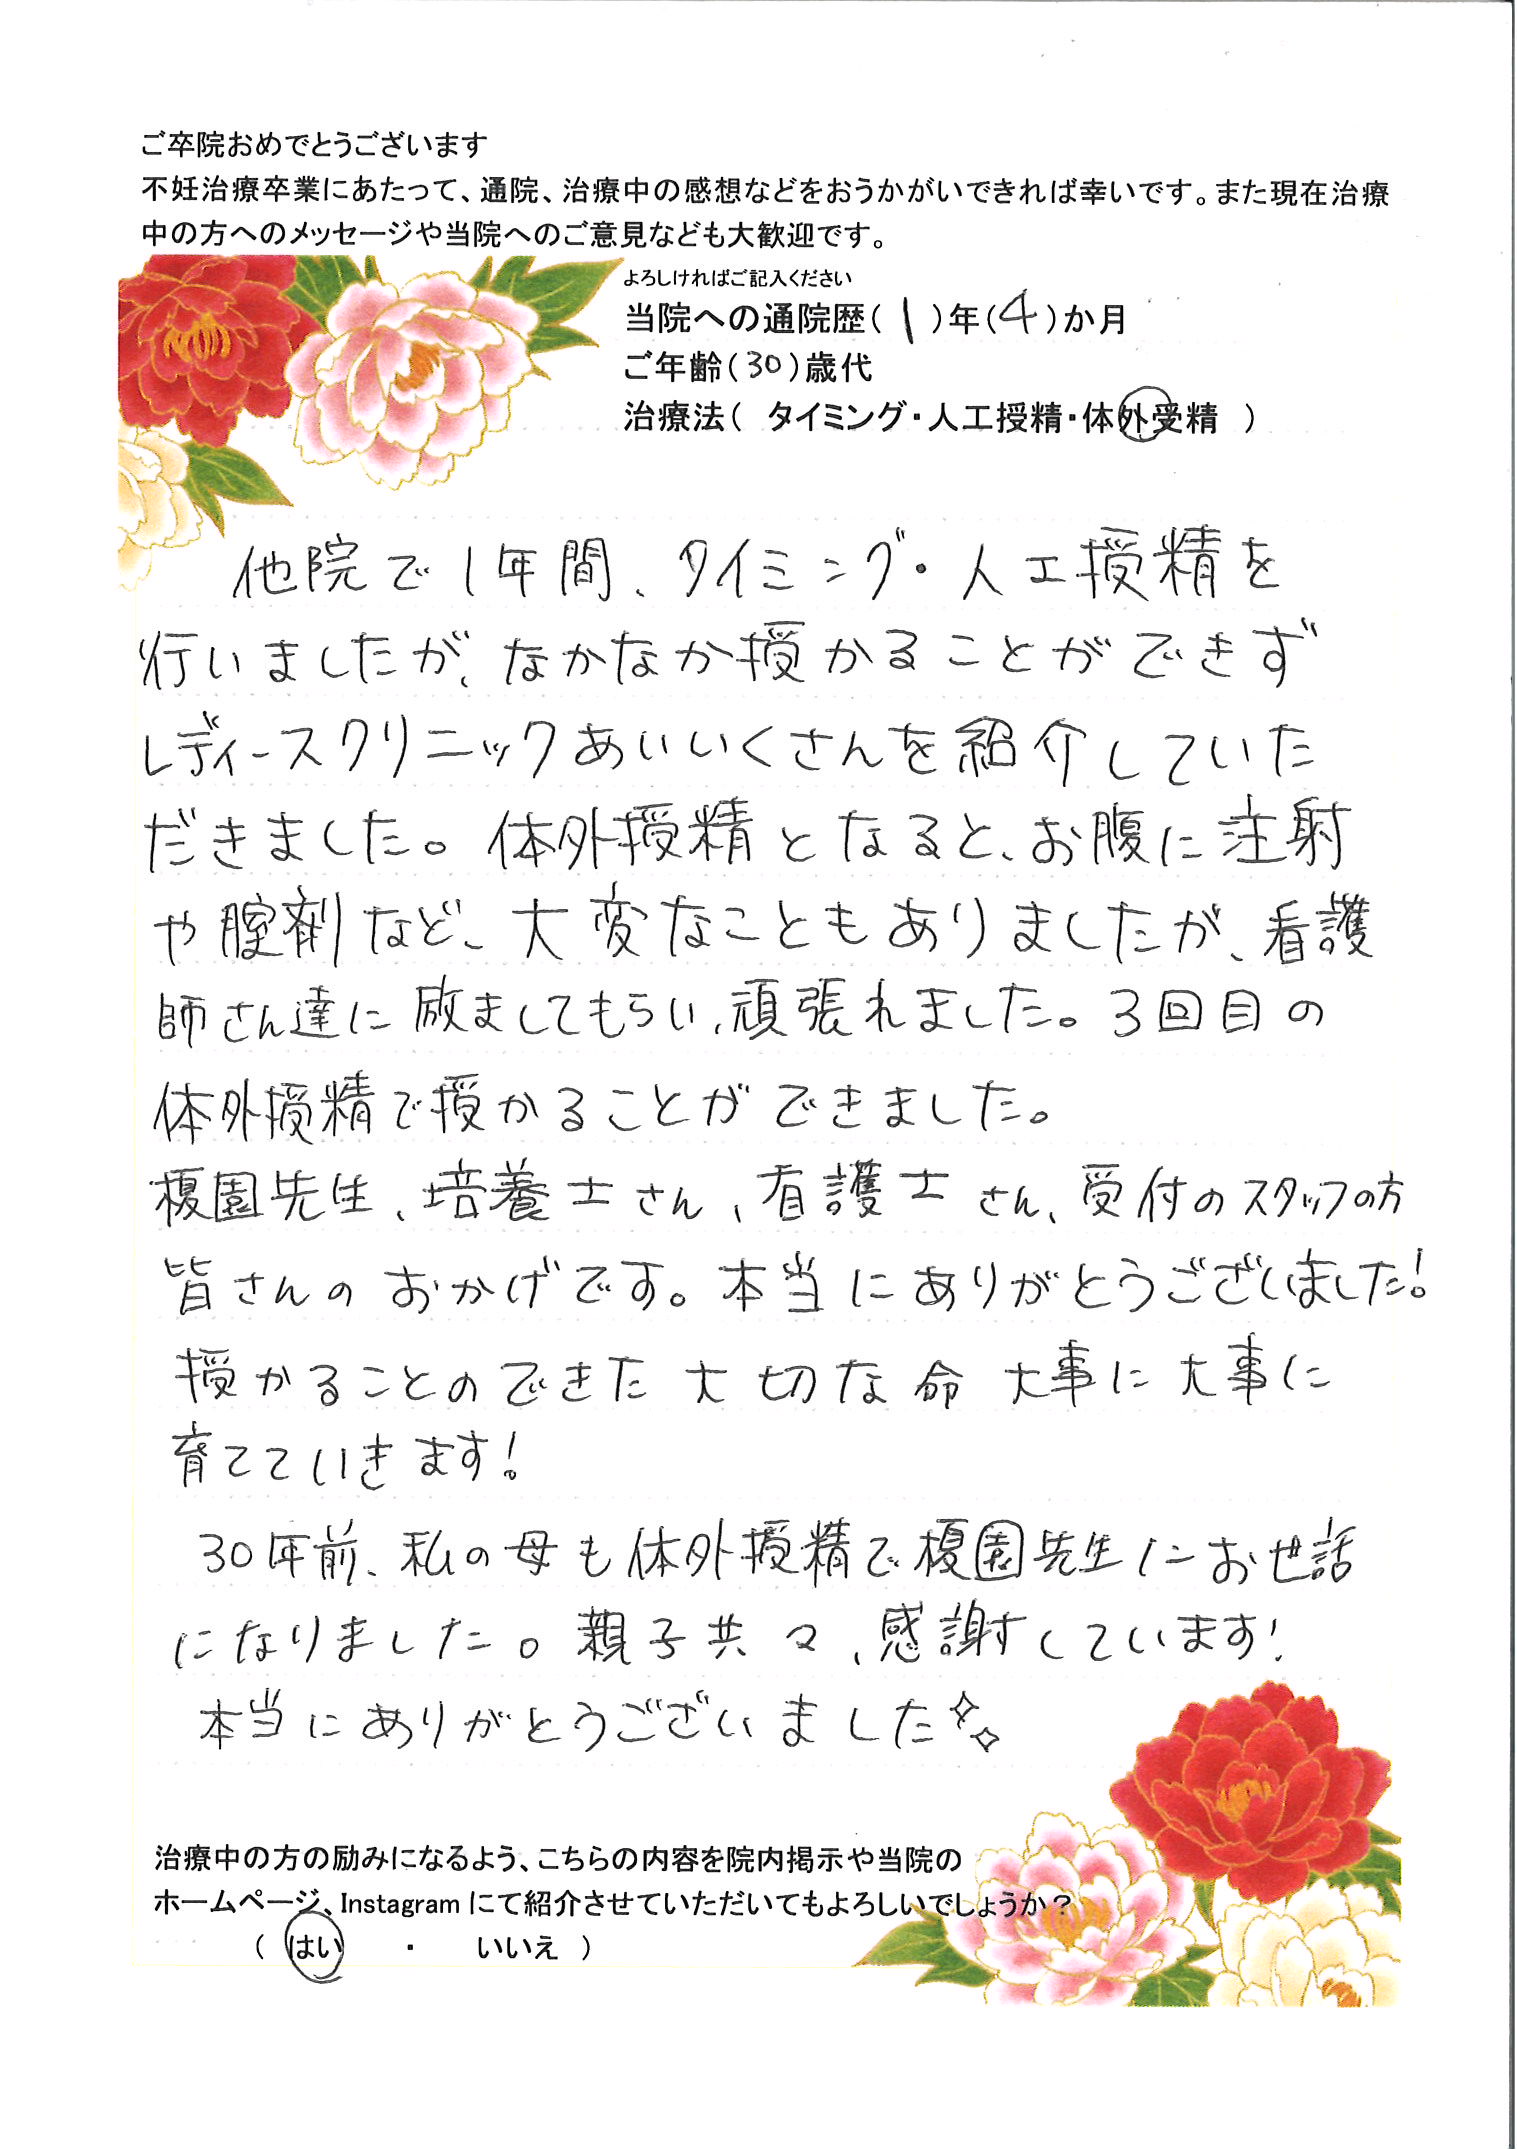 ご卒院おめでとうございます
不妊治療卒業にあたって、通院、治療中の感想などをおうかがいできれば幸いです。また現在治療
中の方へのメッセージや当院へのご意見なども大歓迎です。
よろしければご記入ください
当院への通院歴(1)年(4)か月
ご年齢(30)歳代
治療法( タイミング・人工授精・体外受精 )
他院で1年間、タイミング・人工授精を
行いましたが、なかなか授かることができず
レディースクリニックあいいくさんを紹介していた
だきました。体外授精となると、お腹に注射
や膣剤など、大変なこともありましたが、看護
師さん達に励ましてもらい、頑張れました。3回目の
体外授精で授かることができました。
榎園先生、培養士さん、看護士さん、受付のスタッフの方
皆さんのおかげです。本当にありがとうございました!
授かることのできた大切な命 大事に大事に
育てていきます!
30年前、私の母も体外授精で榎園先生にお世話
になりました。親子共々、感謝しています!
本当にありがとうございました
治療中の方の励みになるよう、こちらの内容を院内掲示や当院の
ホームページ、Instagramにて紹介させていただいてもよろしいでしょうか?
( はい ・ いいえ )